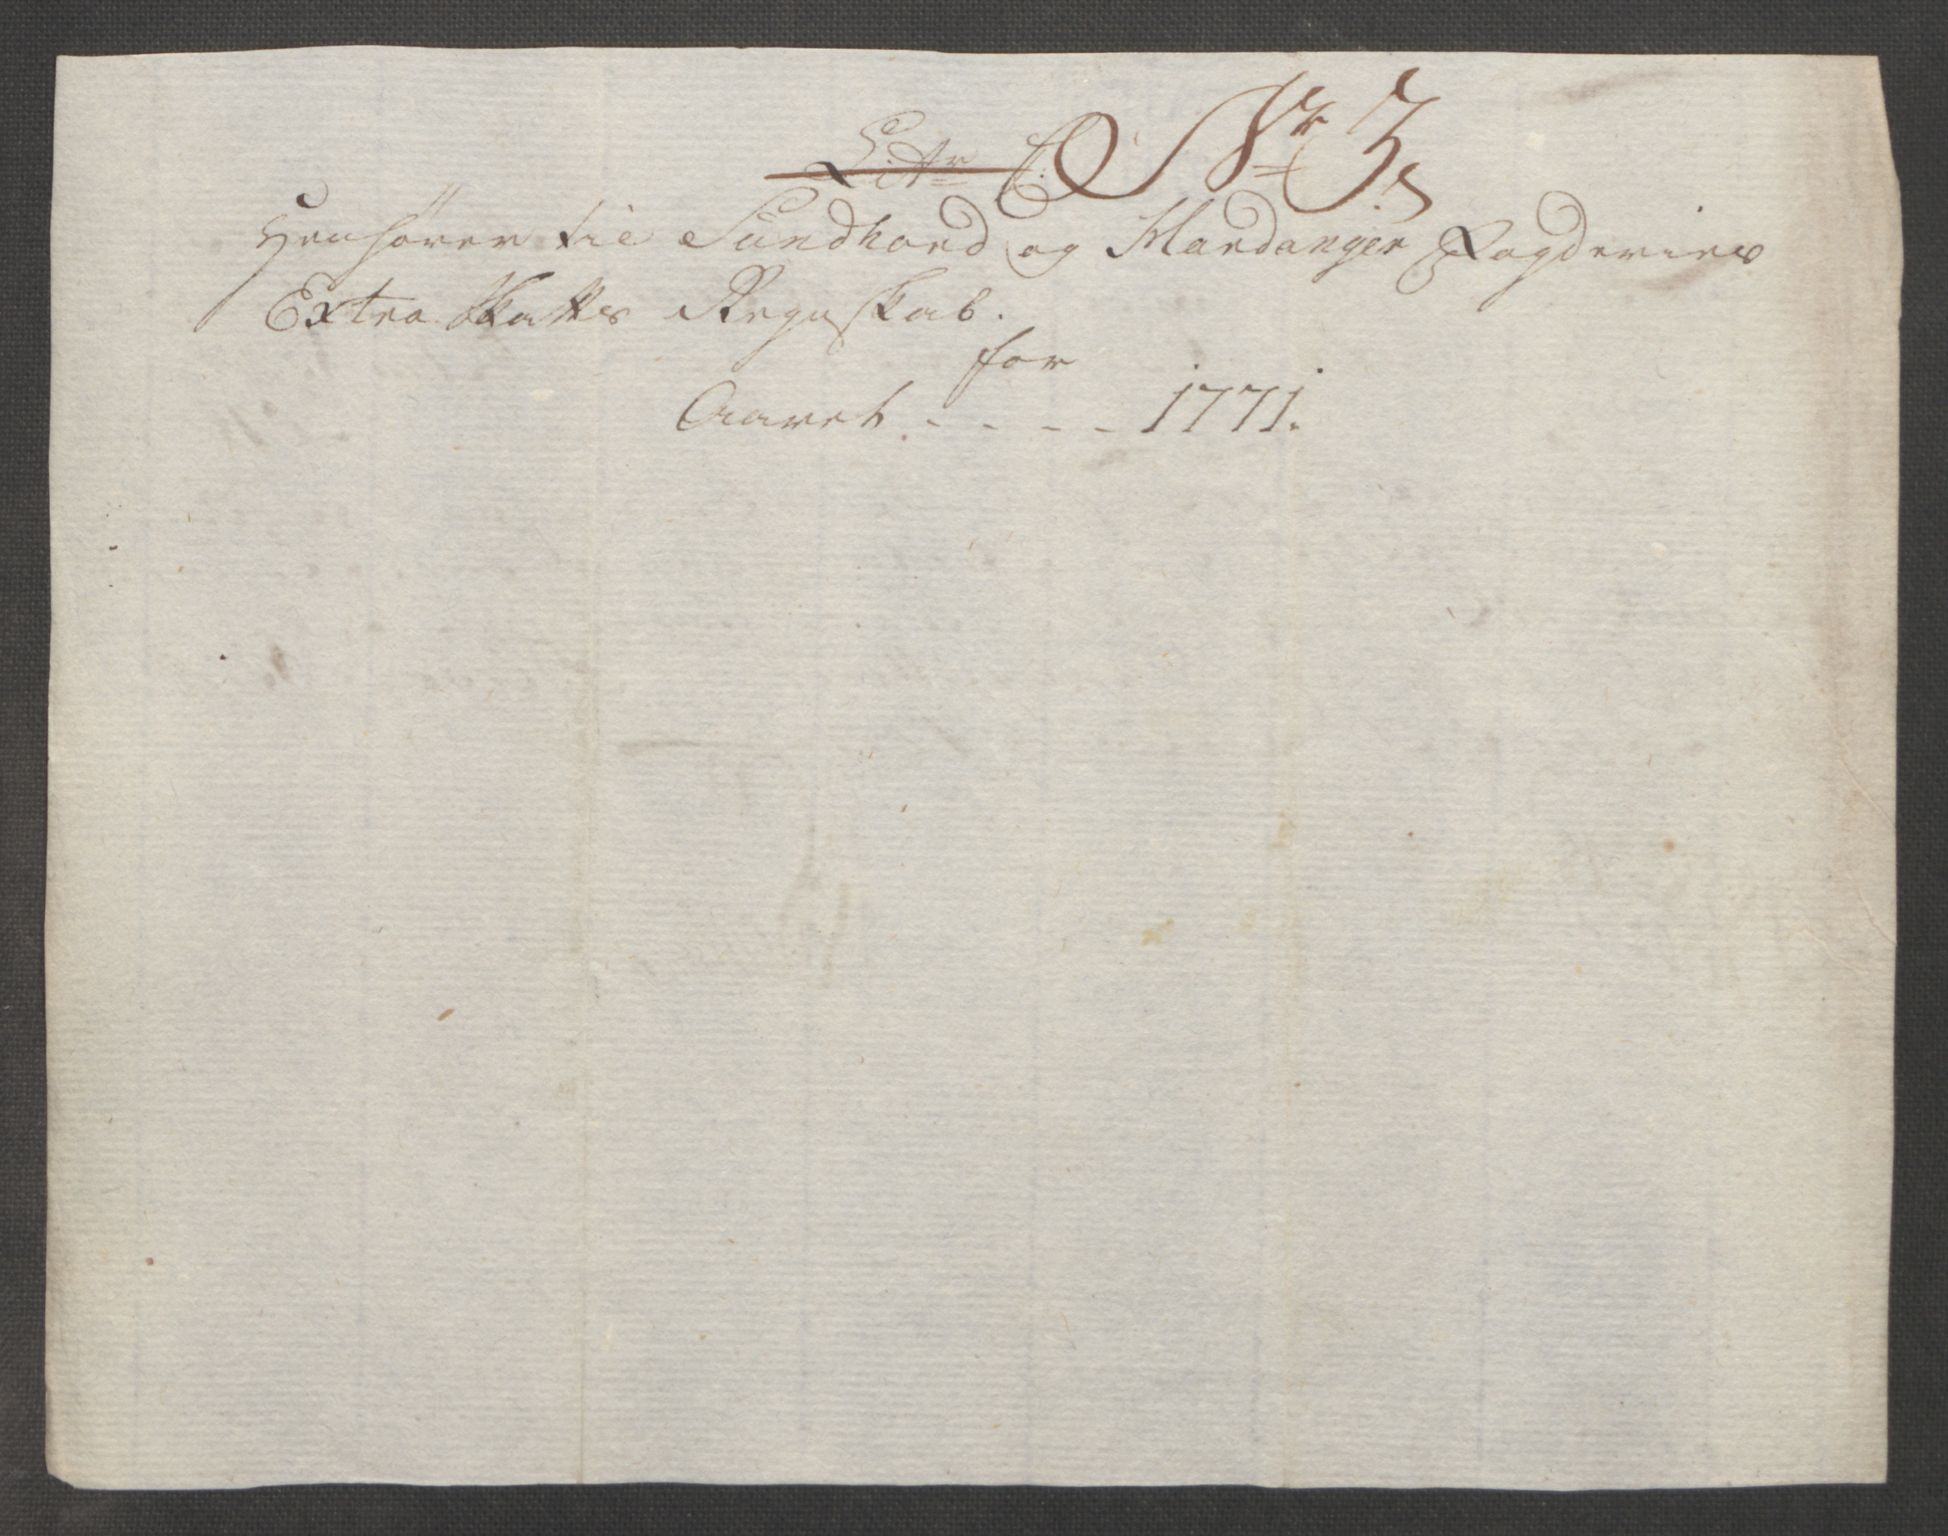 Littr C. Nr 3,
Henhører til Sundhord og Hardanger Fogderies
Extra Skatts Regnskab.
for
Aaret - - - - 1771.